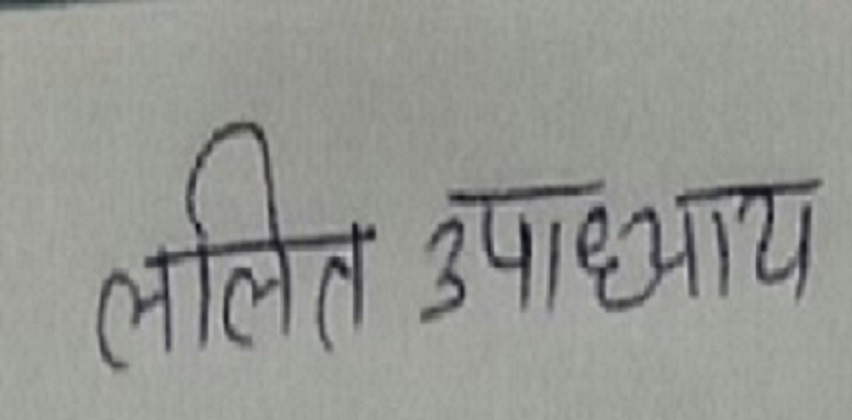 ललित उपाध्याय